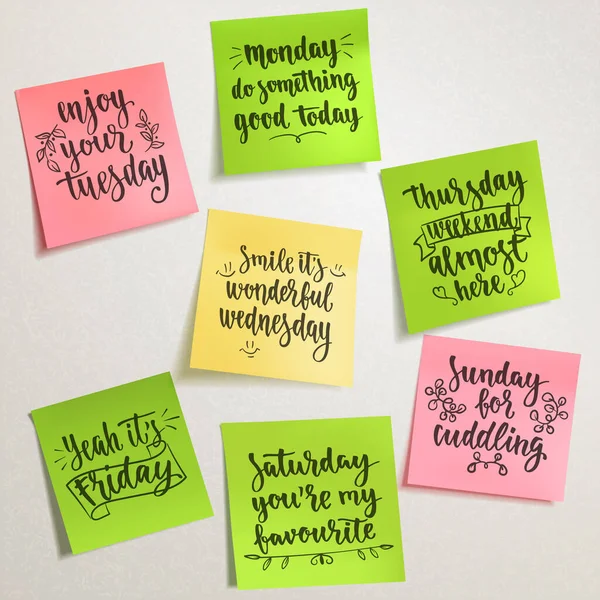 Monday
do something
good today
enjoy
your
tuesday
Smile it's
wonderful
wednesday
thursday
weekend
almost
here
Yeah it's
Friday
Saturday
you're my
favourite
Sunday
for
cuddling